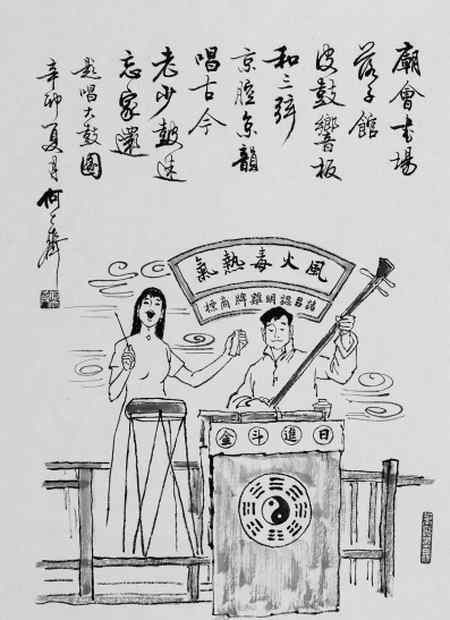 廟會書場
落子館
皮鼓響板
和三弦
京腔京韻
唱古今
老少鼓迷
忘家還
題唱大鼓圖
辛卯夏月何大齊
風火毒熱氣
請君認明雞牌商標
日進斗金